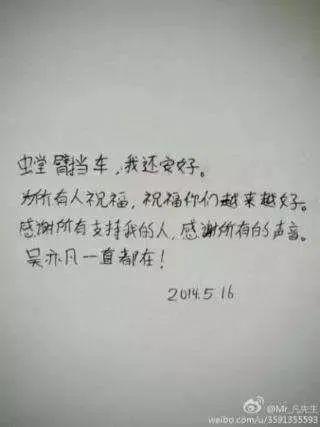 螳臂挡车,我还安好。
为所有人祝福,祝福你们越来越好。
感谢所有支持我的人,感谢所有的声音。
吴亦凡一直都在!
2014.5 16
@Mr_凡先生
weibo.com/u/3591355593